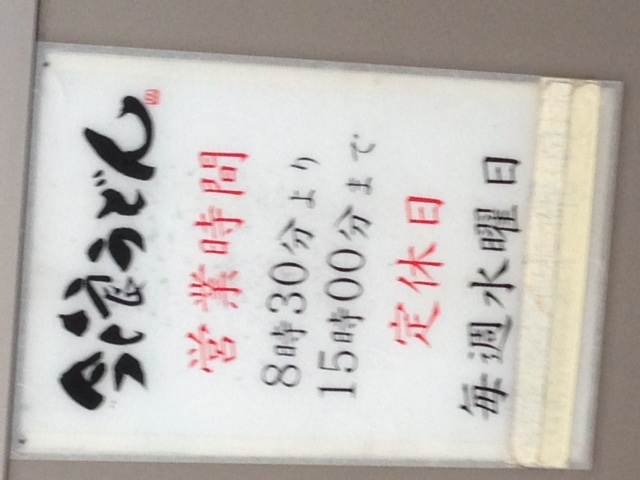 うどん
営業時間
8時30分より
15時00分まで
定休日
毎週水曜日